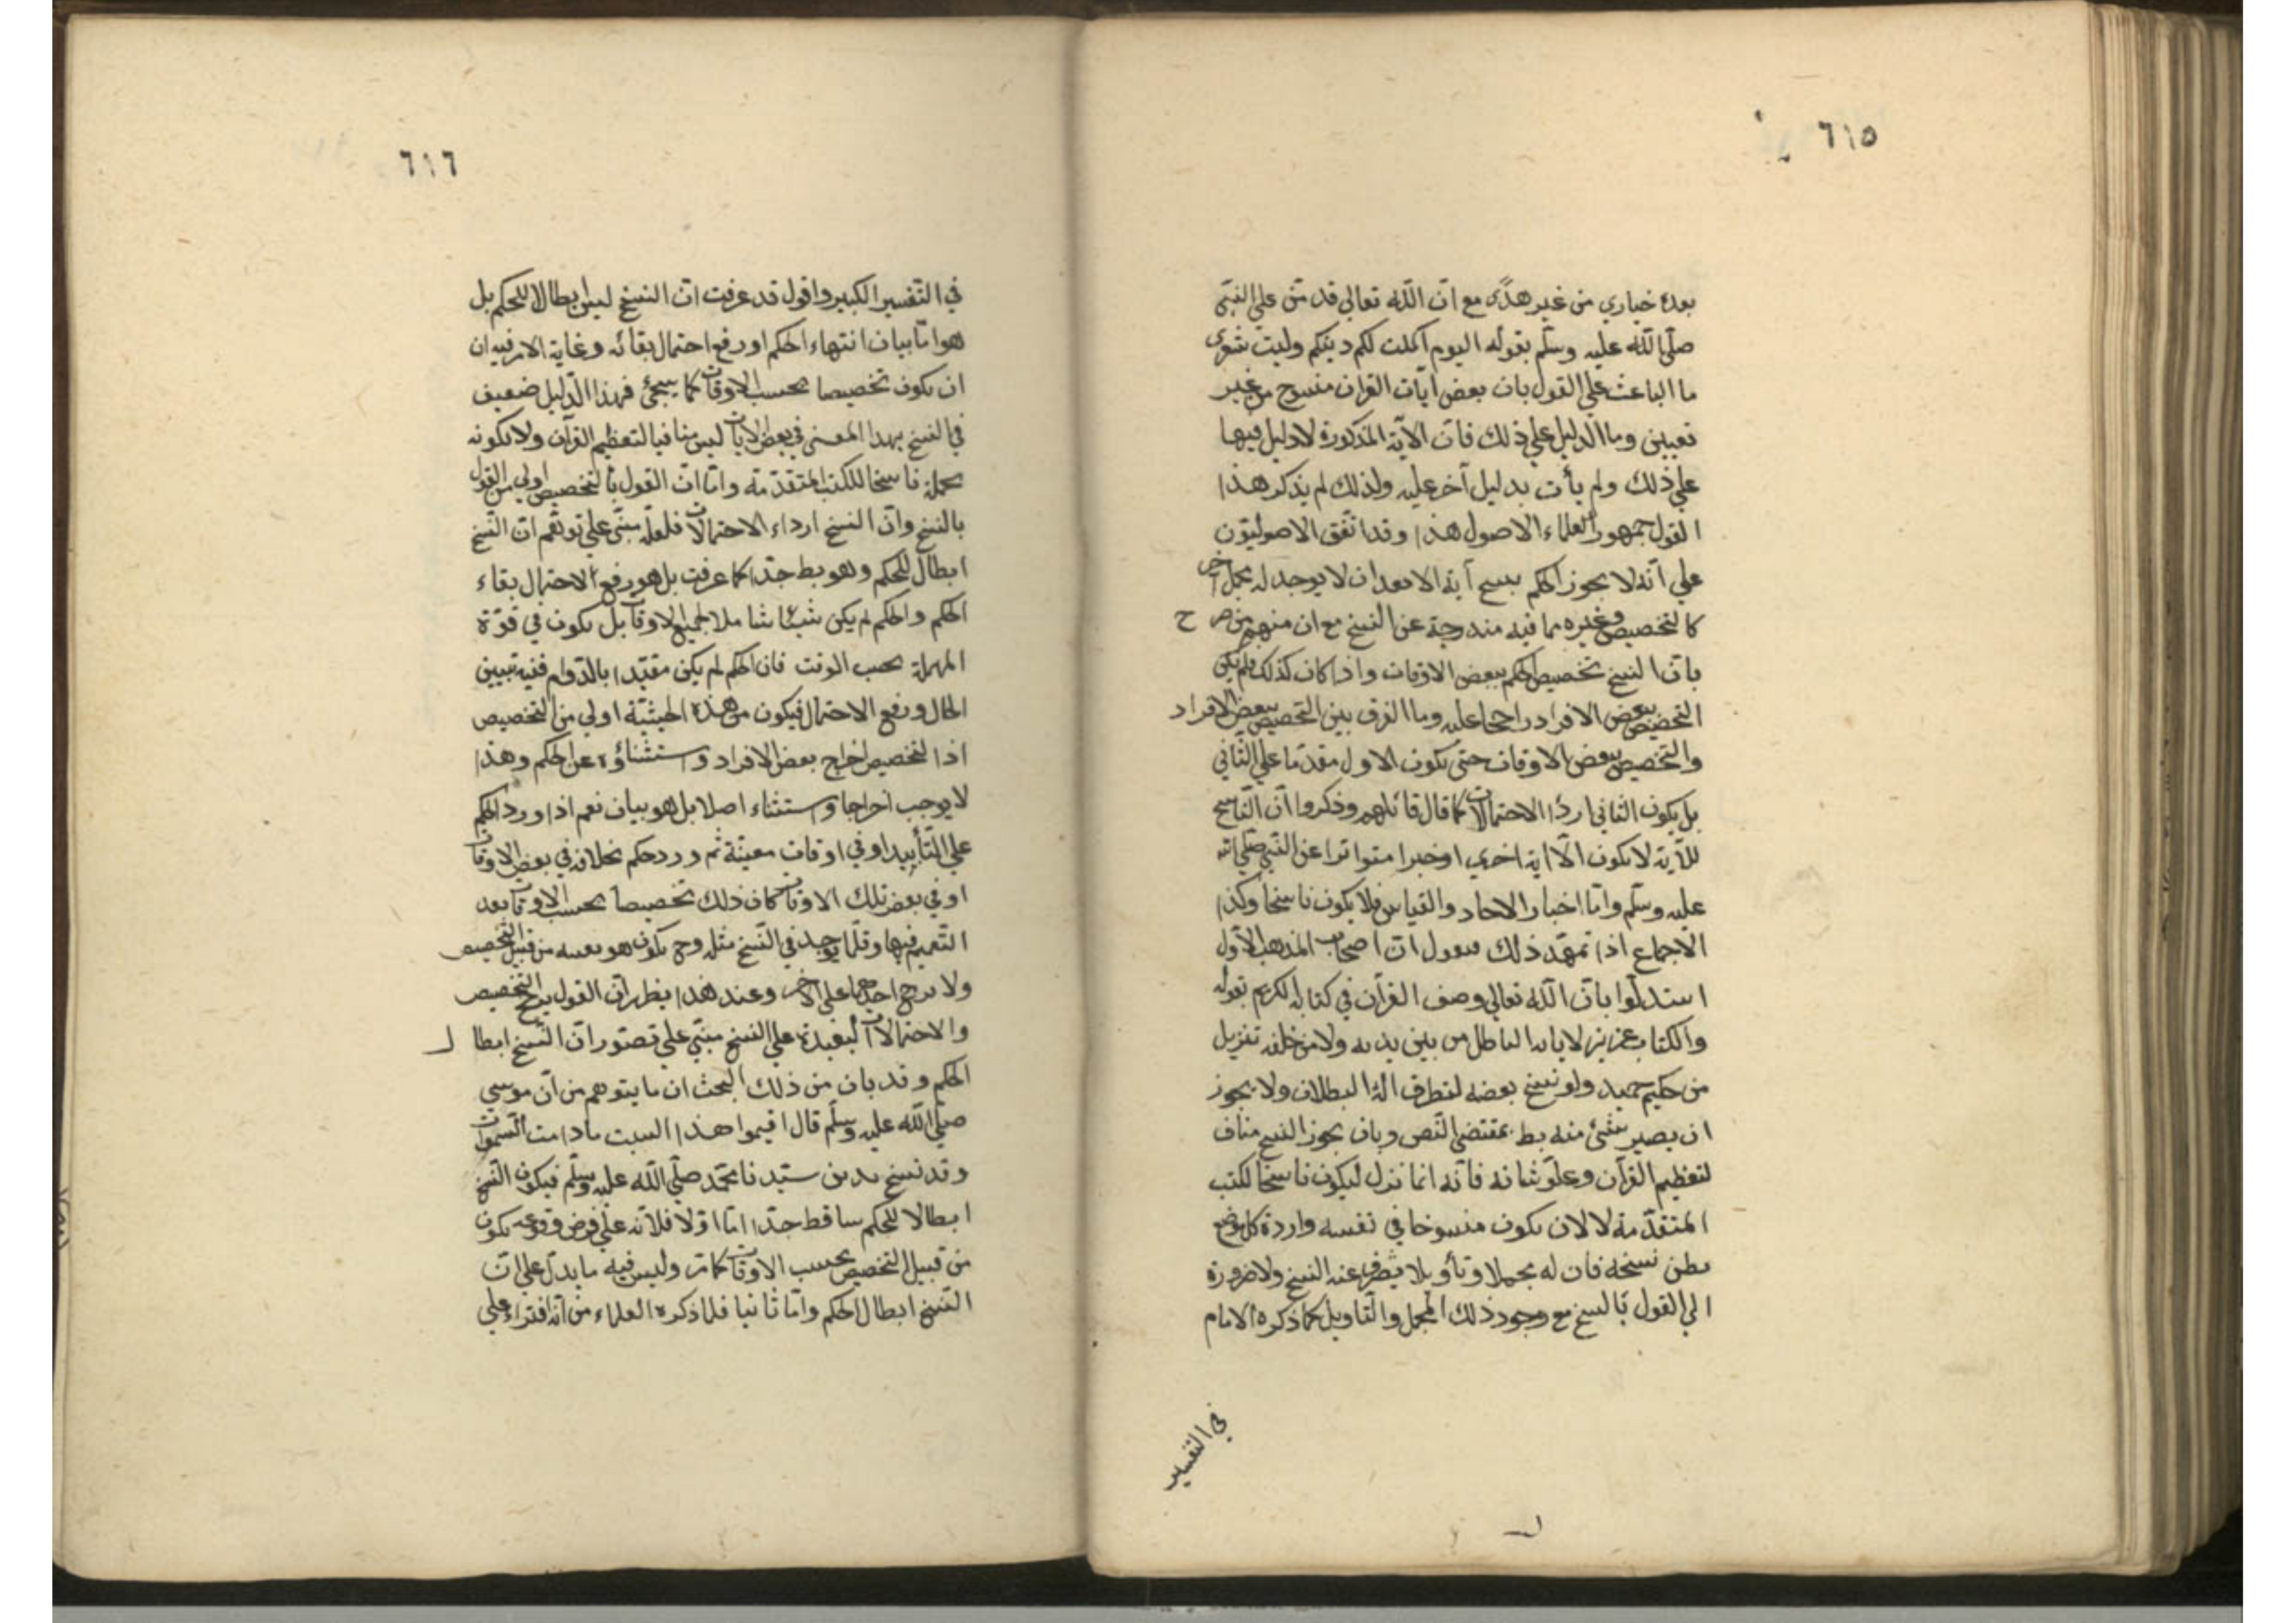 ٦١٥
بعده خياري من غير هدًى مع انّ اللّه تعالي قد منّ علي النبيّ
صلّي اللّه عليه وسلّم بقوله اليوم اكملت لكم دينكم وليت شعري
ما الباعث علي القول بان بعض ايات القران منسوخ من غير
تعيين وما الدليل علي ذلك فانّ الآية المذكورة لا دليل فيها
علي ذلك ولم يأت بدليل آخر عليه ولذلك لم يذكر هذا
القول جمهور العلماء الاصول هذا وقد اتّفق الاصوليّون
علي انّه لا يجوز الحكم بنسخ آية الا بعد ان لا يوجد له محمل آخر
كالتخصيص وغيره مما فيه مندوحة عن النسخ مع ان منهم من صرح
بانّ النسخ تخصيص الحكم ببعض الاوقات واذا كان كذلك فلم يكن
التخصيص ببعض الافراد راجحا عليه وما الفرق بين التخصيص ببعض الافراد
والتخصيص ببعض الاوقات حتي يكون الاول مقدّما علي الثّاني
بل يكون الثاني اردأ الاحتمالات كما قال قائلهم وذكروا انّ النّاسخ
للآية لا يكون الّا اية اخري او خبرا متواترا عن النّبي صلّي اللّه
عليه وسلّم وامّا اخبار الاحاد والقياس فلا يكون ناسخا وكذا
الاجماع اذا تمهّد ذلك فنقول انّ اصحاب المذهب الأوّل
استدلّوا بانّ اللّه تعالي وصف القرآن في كتابه الكريم بقوله
والكتاب عزيز لا ياتيه الباطل من بين يديه ولا من خلفه تنزيل
من حكيم حميد ولو نسخ بعضه لتطرق اليه البطلان ولا يجوز
ان يصير شئ منه بط بمقتضي النّص وبان يجوز النسخ مناف
لتعظيم القرآن وعلوّ شانه فانّه انما نزل ليكون ناسخا لكتب
المتقدّمة لا لان يكون منسوخا في نفسه واردة كل موضع
يظن نسخه فان له محملا وتأويلا يصرف عنه النسخ ولا ضرورة
الي القول بالنسخ مع وجود ذلك المحمل والتّاويل كما ذكره الامام
في التفسير
٦١٦
في التّفسير الكبير واقول قد عرفت انّ النسخ ليس ابطالا للحكم بل
هو امّا بيان انتهاء الحكم او رفع احتمال بقائه وغاية الامر فيه ان
ان يكون تخصيصا بحسب الاوقات كما يجئ فهذا الدّليل ضعيف
في النسخ بهذا المعني في بعض الايات ليس منافيا لتعظيم القرآن ولا لكونه
بجملة ناسخا للكتب المتقدّمة وامّا انّ القول بالتخصيص اولي من القول
بالنسخ وانّ النسخ ارداء الاحتمالات فلعلّه مبنيّ علي توهّم انّ النّسخ
ابطال للحكم وهو بط جدّا كما عرفت بل هو رفع الاحتمال بقاء
الحكم والحكم لم يكن شيئا شاملا لجميع الاوقات بل يكون في قوّة
المهملة بحسب الوقت فان الحكم لم يكن مقيّدا بالدّوام ففيه تبيين
الحال ورفع الاحتمال فيكون من هذه الحيثيّة اولي من التخصيص
اذا لتخصيص اخراج بعض الافراد واستثناؤه عن الحكم وهذا
لا يوجب اخراجا واستثناء اصلا بل هو بيان نعم اذا ورد الحكم
علي التّأبيد او في اوقات معيّنة ثم ورد حكم بخلافه في بعض الاوقات
او في بعض تلك الاوقات كان ذلك تخصيصا بحسب الاوقات بعد
التعميم فيها وقلما يوجد في النّسخ مثله وح يكون هو بعينه من قبيل التخصيص
ولا يرجح احدهما علي الاخر وعند هذا يظهر انّ القول يرجح التخصيص
والاحتمالات البعيدة علي النسخ مبنيّ علي تصوّر انّ النّسخ ابطال
الحكم وقد بان من ذلك البحث ان ما يتوهم من انّ موسي
صلّي اللّه عليه وسلّم قال اقيموا هذا السبت ما دامت السّموات
وقد نسخ بدين سيّدنا محمّد صلّي اللّه عليه وسلّم فيكون النّسخ
ابطالا للحكم ساقط جدّا امّا اوّلا فلانّه علي فرض وقوعه يكون
من قبيل التخصيص بحسب الاوقات كما مرّ وليس فيه ما يدلّ علي انّ
النّسخ ابطال الحكم وامّا ثانيا فلما ذكره العلماء من انّه افتراء علي